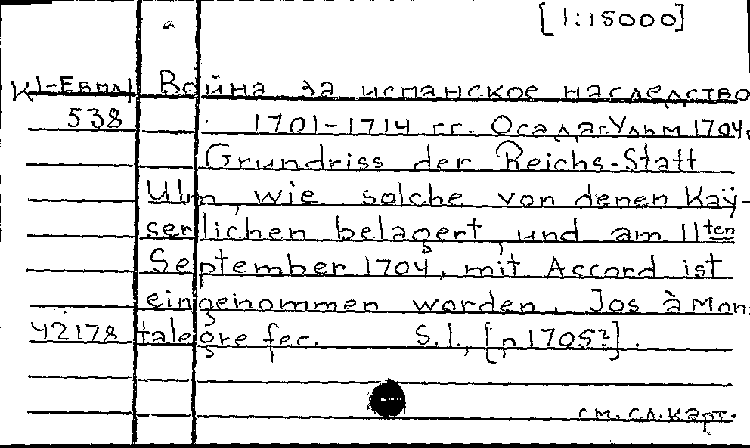 [1:15000]
К1-Евмл Война за испанское наследство
538 1701-1714 гг. Осада г. Ульм 1704.
Grundriss der Reichs-Statt
Ulm, wie solche von denen Kaÿ-
serlichen belagert, und am 11ten
September 1704, mit Accord ist
eingenommen worden. Jos à Mon-
У2178 talegre fec. S.l., [n 1705?].
см. сл. карт.